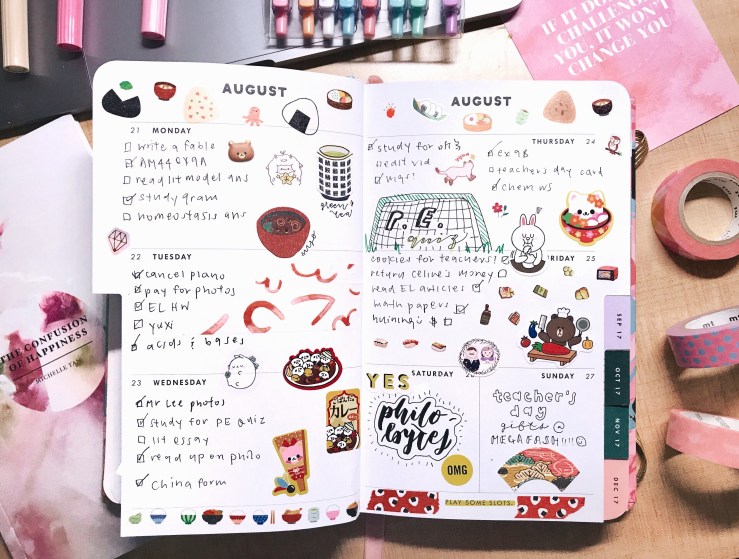 IF IT DOESN'T
CHALLENGE
YOU, IT WON'T
CHANGE YOU
AUGUST
21 MONDAY
write a fable
AM4409YA
read lit model ans
study gram
homeostasis ans
green tea
miso
22 TUESDAY
cancel piano
pay for photos
EL HW
yuxi
acids & bases
23 WEDNESDAY
Mr Lee photos
study for PE quiz
lit essay
read up on philo
China form
カレー
AUGUST
THURSDAY 24
study for
edit vid
ex 9B
teacher's day card
chem ws
P.E.
quiz
FRIDAY 25
cookies for teachers!
return celine's money
read EL articles
math papers
huining's $
SATURDAY 26
YES
philo-
OMG
SUNDAY 27
teacher's
day
gifts @
MEGAFASH!!!!
PLAY SOME SLOTS.
SEP 17
OCT 17
NOV 17
DEC 17
THE CONFUSION
OF HAPPINESS
MICHELLE TAN
mt